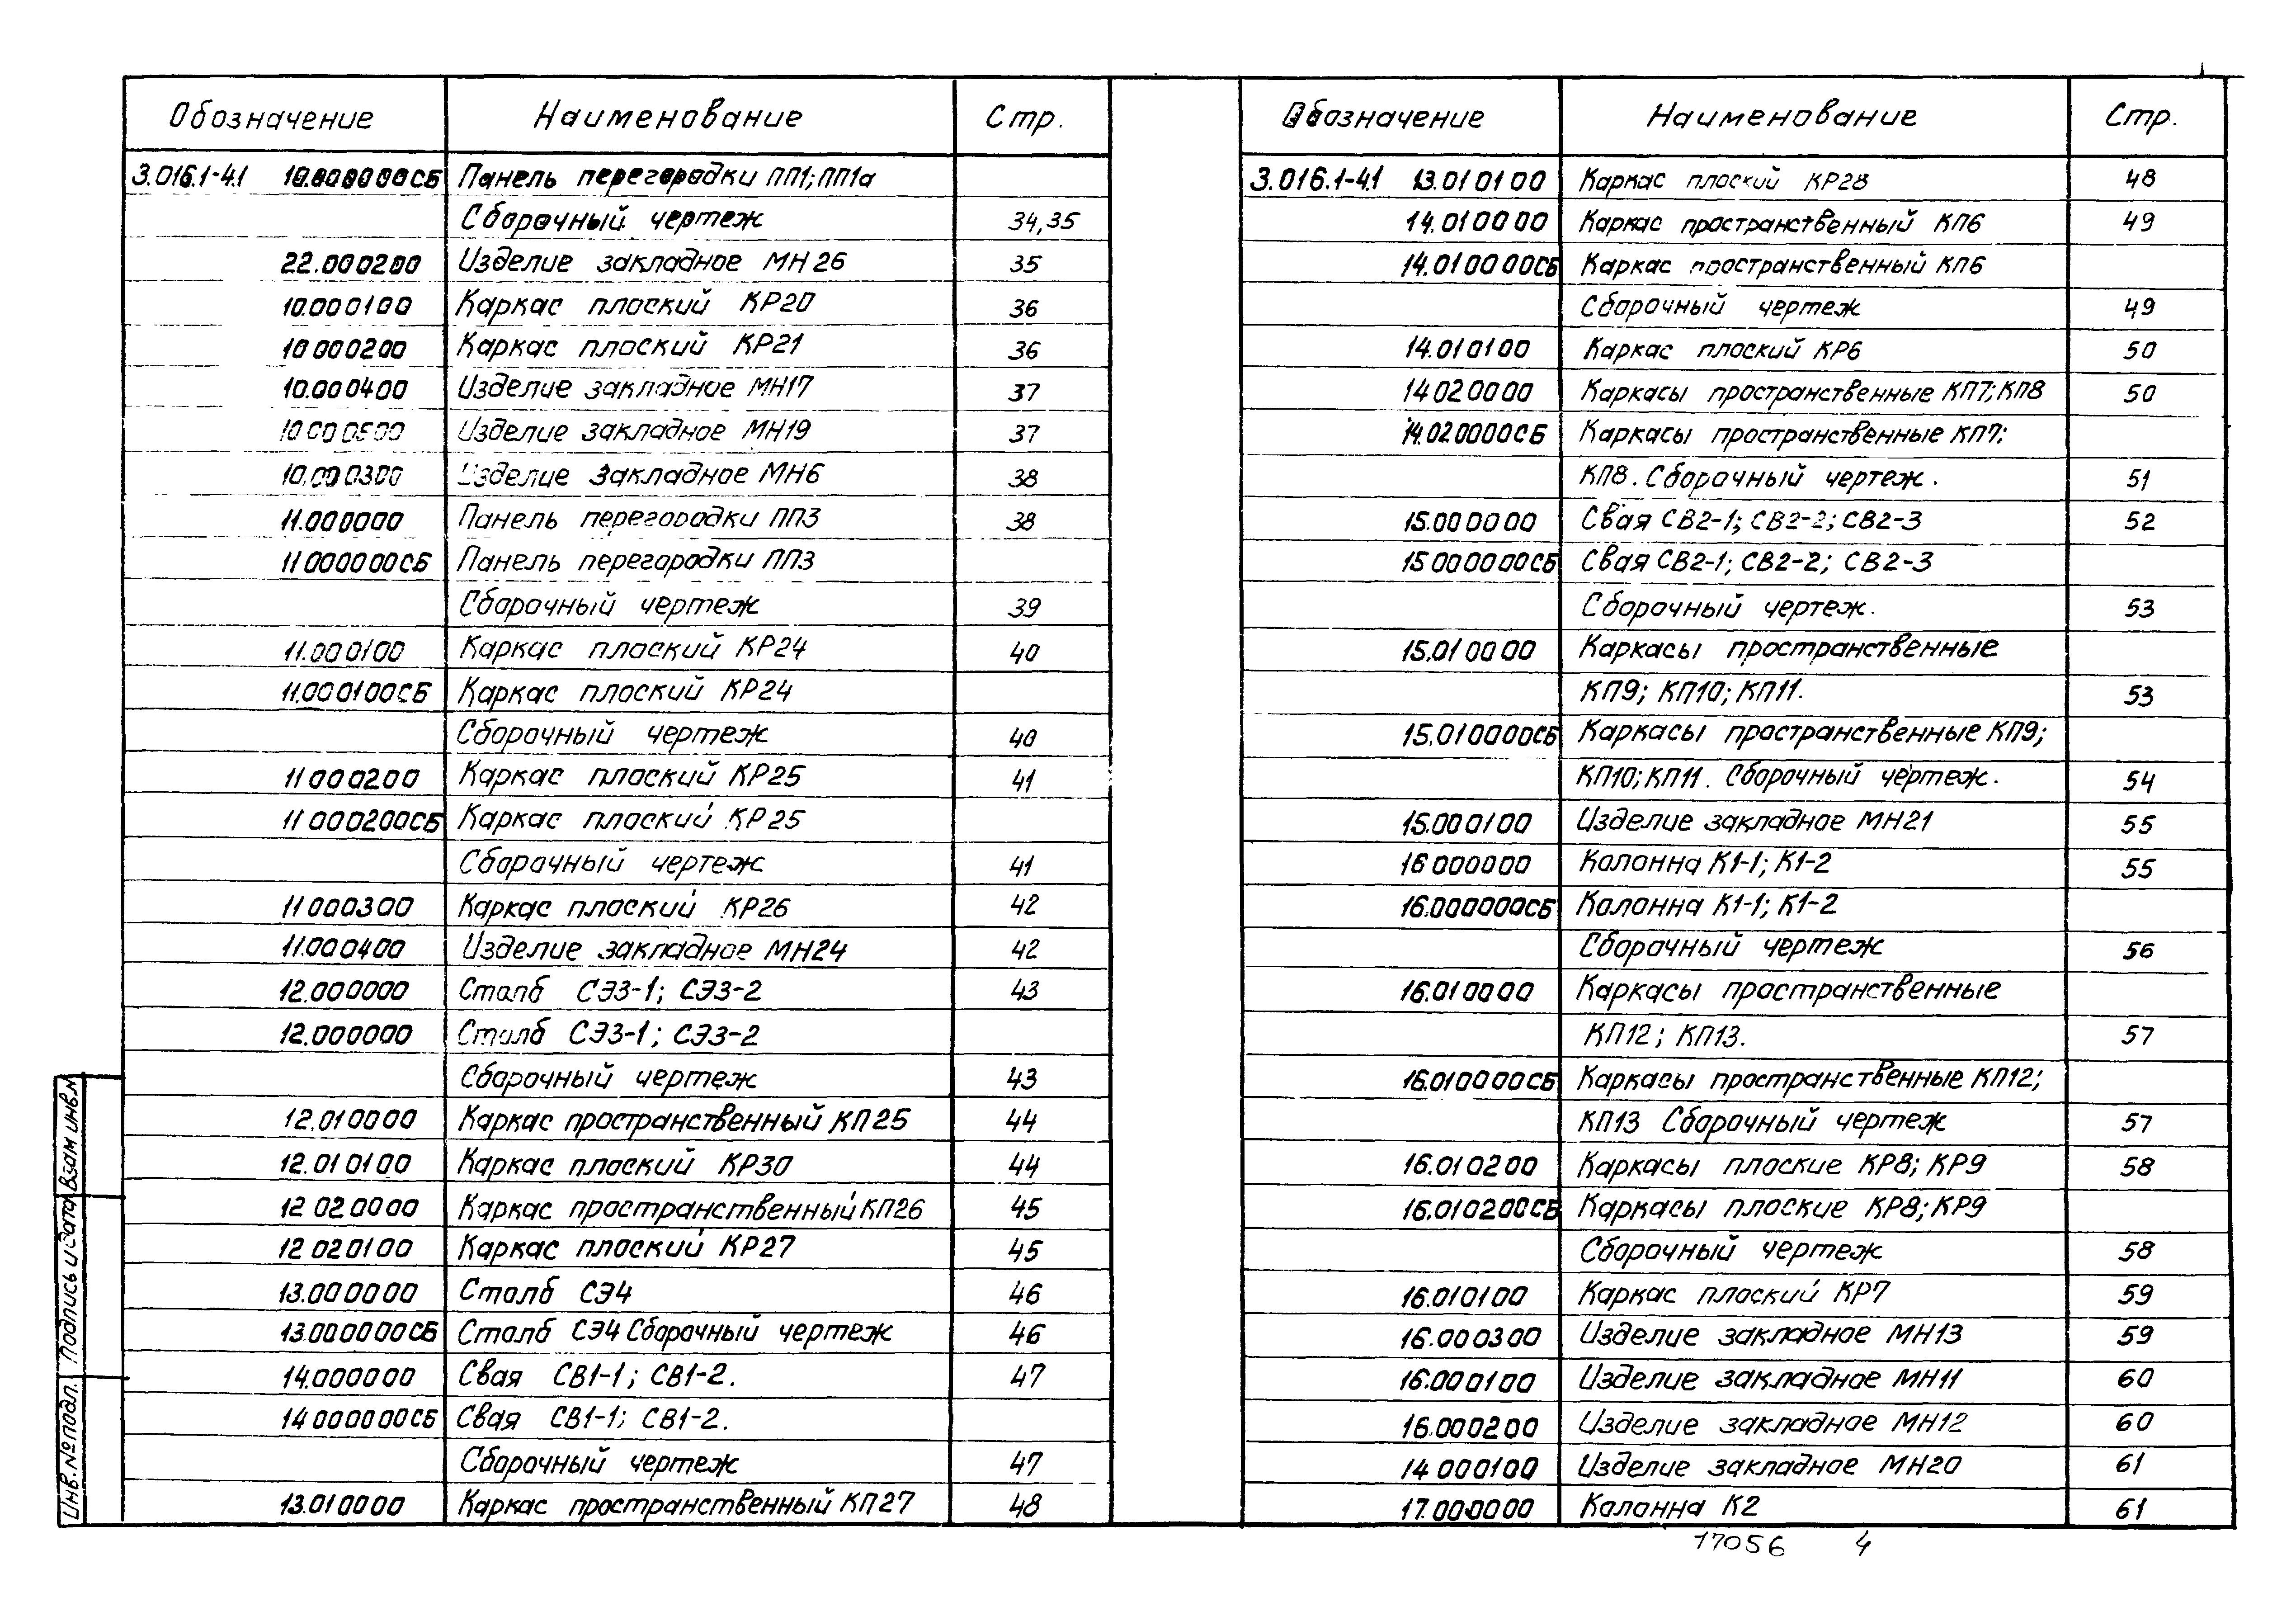 Обозначение Наименование Стр.
3.016.1-4.1 10.000000СБ Панель перегородки ПП1; ПП1а
Сборочный чертеж 34,35
22.000200 Изделие закладное МН26 35
10.000100 Каркас плоский КР20 36
10 000200 Каркас плоский КР21 36
10.000400 Изделие закладное МН17 37
Изделие закладное МН19 37
10.000300 Изделие Закладное МН6 38
11.000000 Панель перегородки ПП3 38
11 000000СБ Панель перегородки ПП3
Сборочный чертеж 39
11.000100 Каркас плоский КР24 40
11.000100СБ Каркас плоский КР24
Сборочный чертеж 40
11 000200 Каркас плоский КР25 41
11 000200СБ Каркас плоский КР25
Сборочный чертеж 41
11 000300 Каркас плоский КР26 42
11.000400 Изделие закладное МН24 42
12.000000 Столб СЭ3-1; СЭ3-2 43
12.000000 Столб СЭ3-1; СЭ3-2
Сборочный чертеж 43
12.010000 Каркас пространственный КП25 44
12.010100 Каркас плоский КР30 44
12 020000 Каркас пространственный КП26 45
12 020100 Каркас плоский КР27 45
13.000000 Столб СЭ4 46
13.000000СБ Столб СЭ4 Сборочный чертеж 46
14.000000 Свая СВ1-1; СВ1-2. 47
14 000000СБ Свая СВ1-1; СВ1-2.
Сборочный чертеж 47
13.010000 Каркас пространственный КП27 48
Обозначение Наименование Стр.
3.016.1-4.1 13.010100 Каркас плоский КР28 48
14.010000 Каркас пространственный КП6 49
14.010000СБ Каркас пространственный КП6
Сборочный чертеж 49
14.010100 Каркас плоский КР6 50
14 020000 Каркасы пространственные КП7; КП8 50
14.020000СБ Каркасы пространственные КП7;
КП8. Сборочный чертеж. 51
15.000000 Свая СВ2-1; СВ2-2; СВ2-3 52
15 000000СБ Свая СВ2-1; СВ2-2; СВ2-3
Сборочный чертеж. 53
15.010000 Каркасы пространственные
КП9; КП10; КП11. 53
15.010000СБ Каркасы пространственные КП9;
КП10; КП11. Сборочный чертеж. 54
15.000100 Изделие закладное МН21 55
16 000000 Колонна К1-1; К1-2 55
16.000000СБ Колонна К1-1; К1-2
Сборочный чертеж 56
16.010000 Каркасы пространственные
КП12; КП13. 57
16.010000СБ Каркасы пространственные КП12;
КП13 Сборочный чертеж 57
16.010200 Каркасы плоские КР8; КР9 58
16.010200СБ Каркасы плоские КР8; КР9
Сборочный чертеж 58
16.010100 Каркас плоский КР7 59
16.000300 Изделие закладное МН13 59
16.000100 Изделие закладное МН11 60
16.000200 Изделие закладное МН12 60
14 000100 Изделие закладное МН20 61
17.000000 Колонна К2 61
Инв. № подл. Подпись и дата Взам инв.№
17056 4